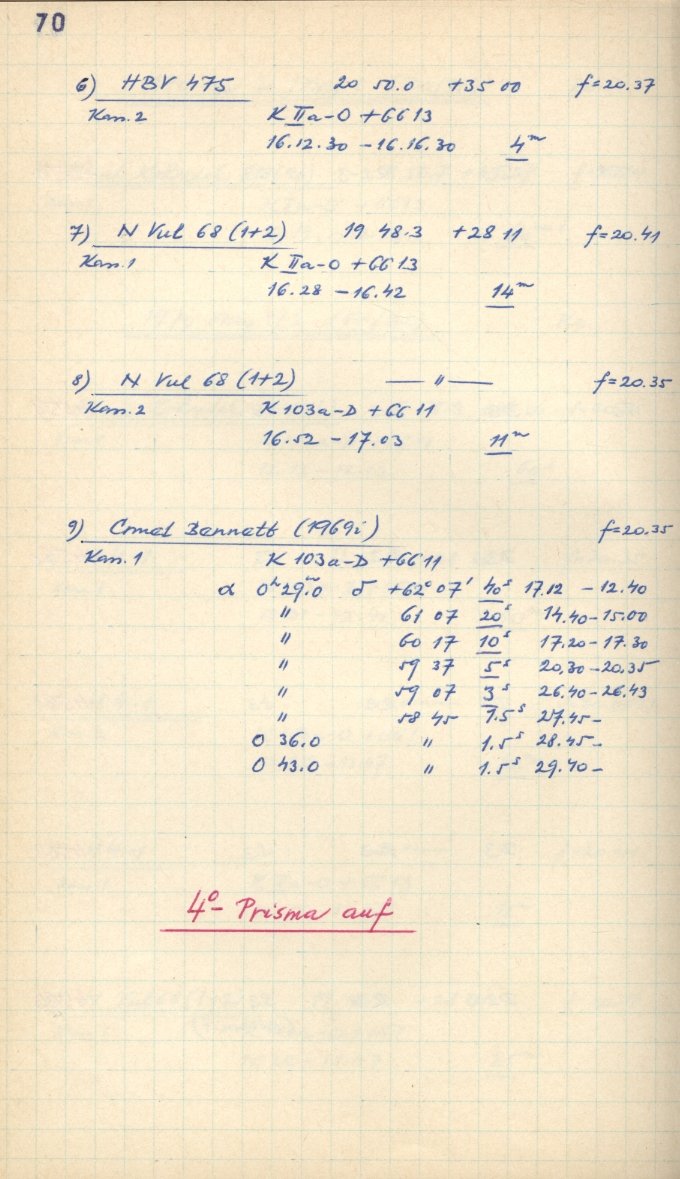 70
6) HBV 475 20 50.0 +35 00 f=20.37
Kass.2 K IIa-O +GG13
16.12.30 - 16.16.30 4ᵐ
7) N Vul 68 (1+2) 19 48.3 +28 11 f=20.41
Kass.1 K IIa-O +GG13
16.28 - 16.42 14ᵐ
8) N Vul 68 (1+2) — " — f=20.35
Kass.2 K 103a-D +GG11
16.52 - 17.03 11ᵐ
9) Comet Bennett (1969i) f=20.35
Kass.1 K 103a-D +GG11
α 0ʰ29ᵐ.0 δ +62° 07' 40ˢ 17.12 - 12.40
" 61 07 20ˢ 14.40 - 15.00
" 60 17 10ˢ 17.20 - 17.30
" 59 37 5ˢ 20.30 - 20.35
" 59 07 3ˢ 26.40 - 26.43
" 58 45 1.5ˢ 27.45 -
0 36.0 " 1.5ˢ 28.45 -
0 43.0 " 1.5ˢ 29.40 -
4°- Prisma auf